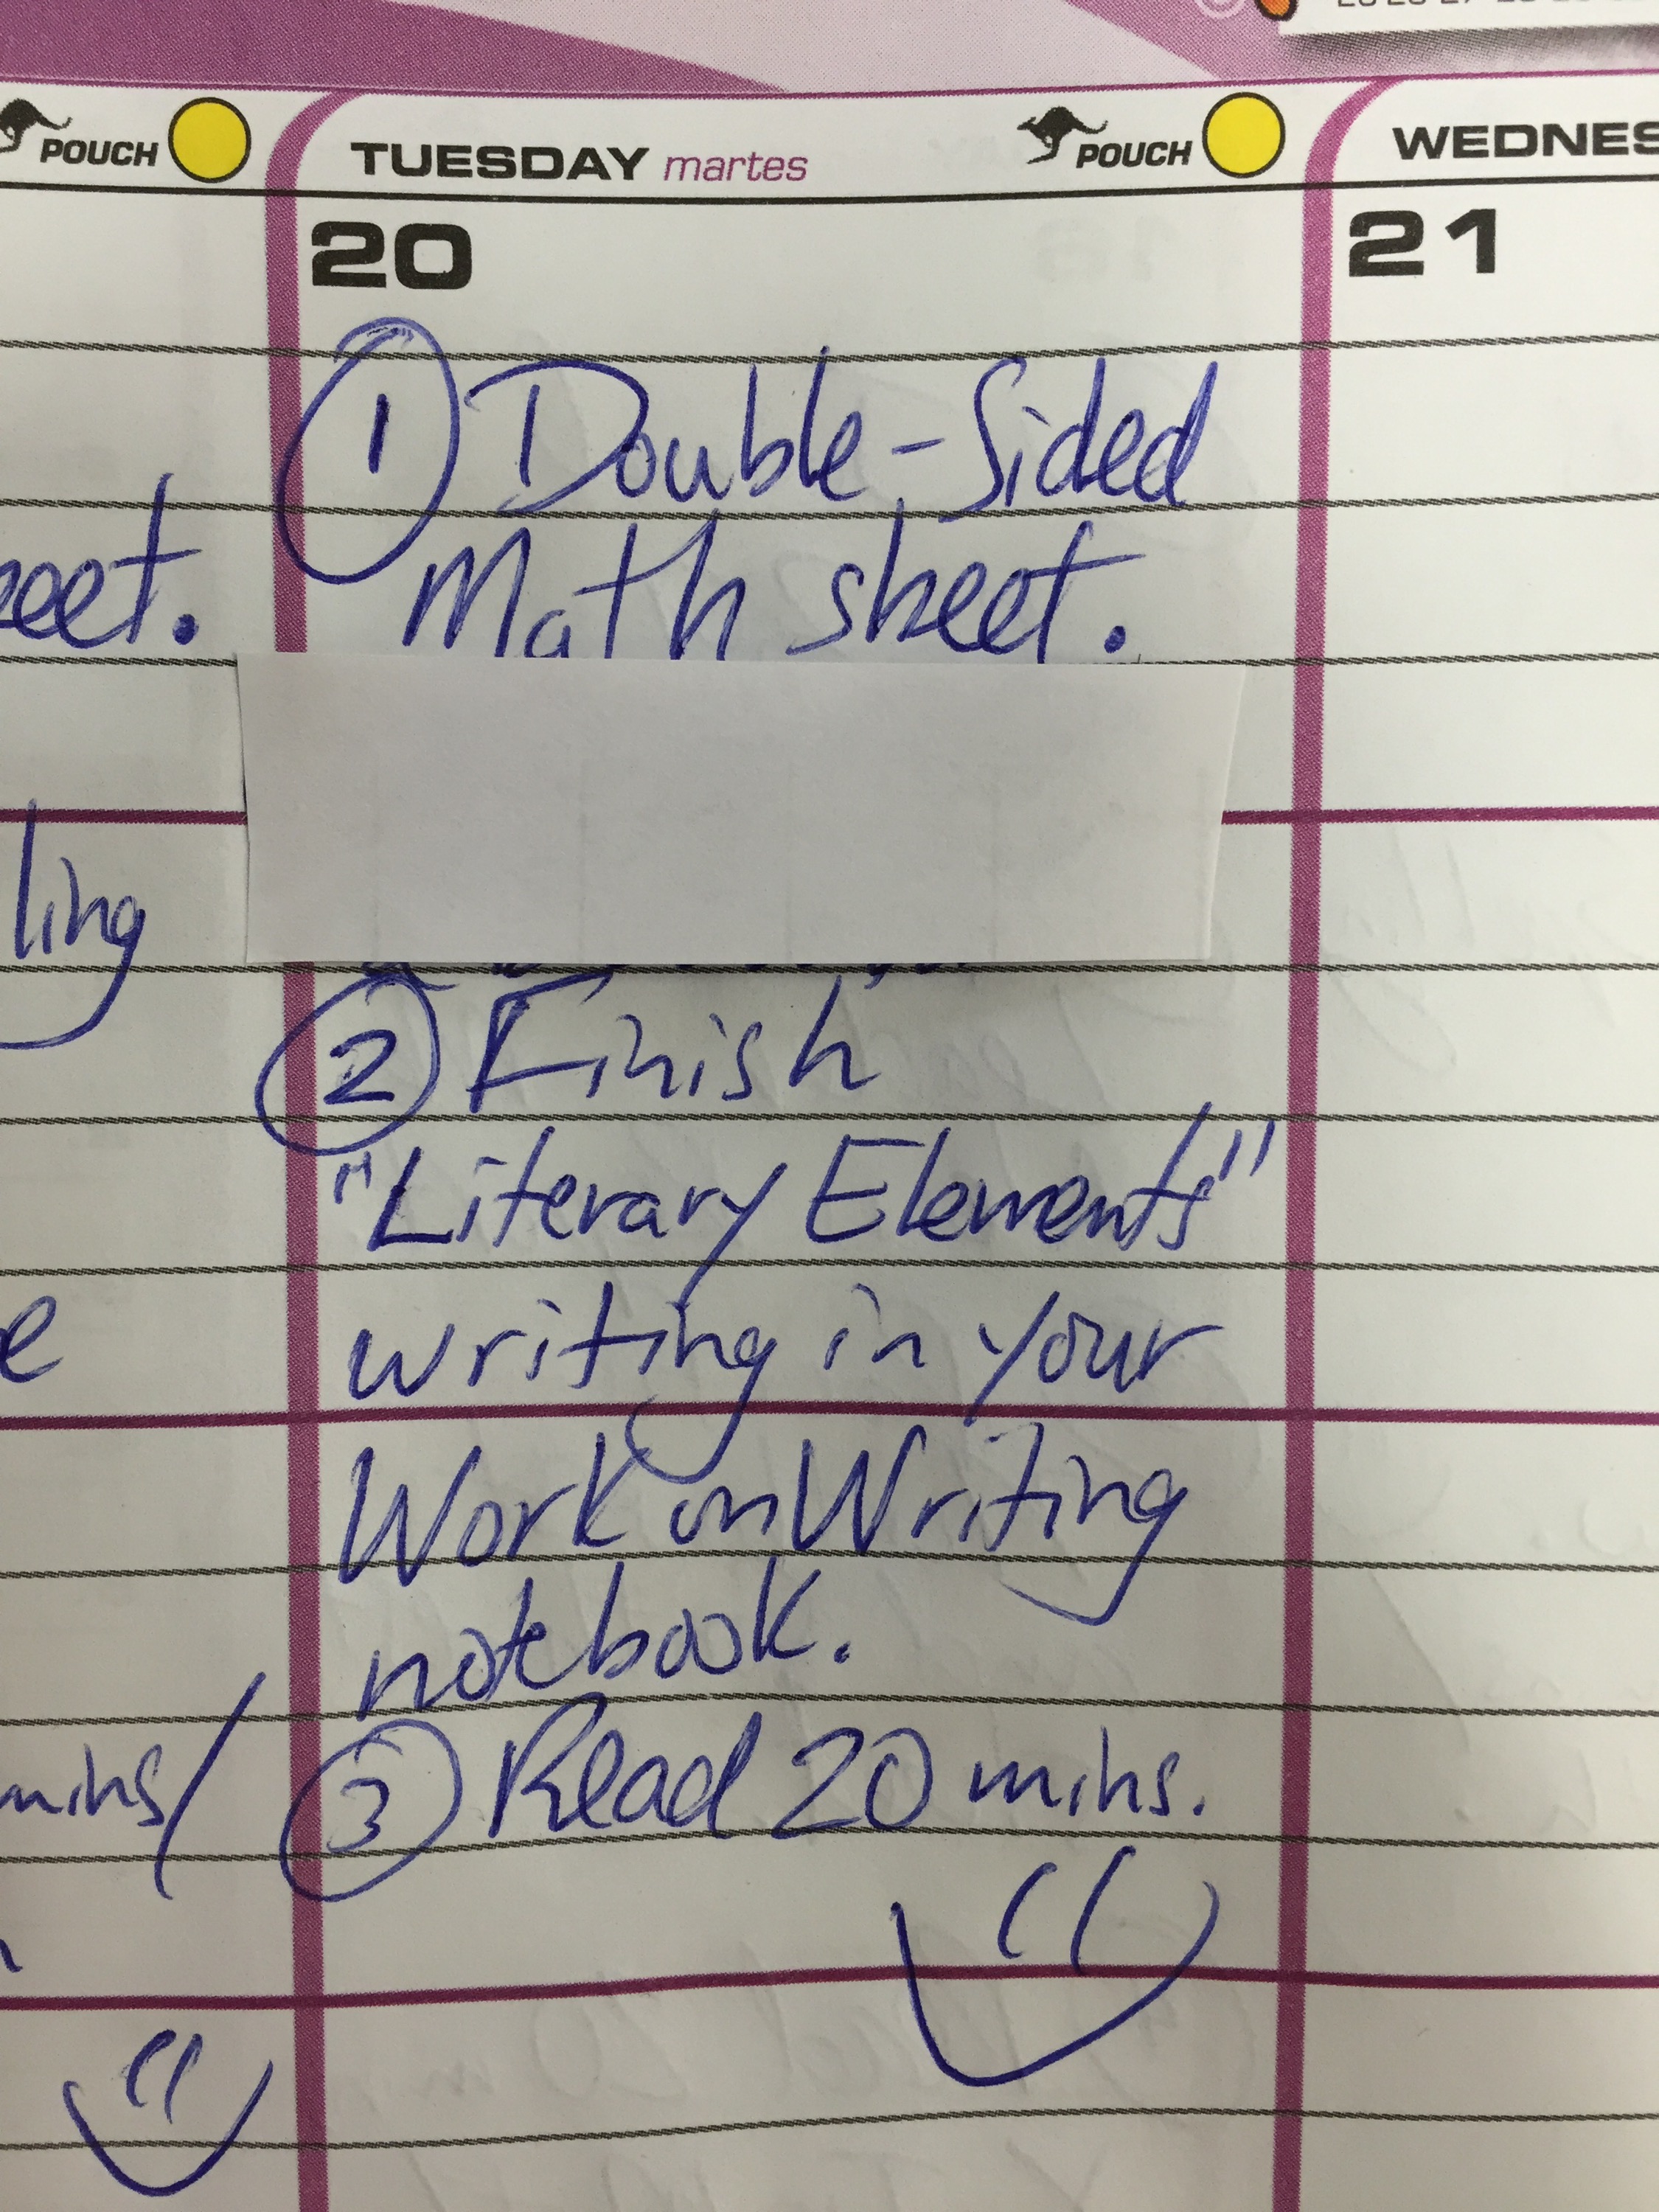 POUCH
TUESDAY martes
POUCH
WEDNES
20
21
① Double-Sided
Math sheet.
eet.
ling
② Finish
"Literary Elements"
writing in your
e
Work on Writing
notebook.
③ Read 20 mins.
mins/